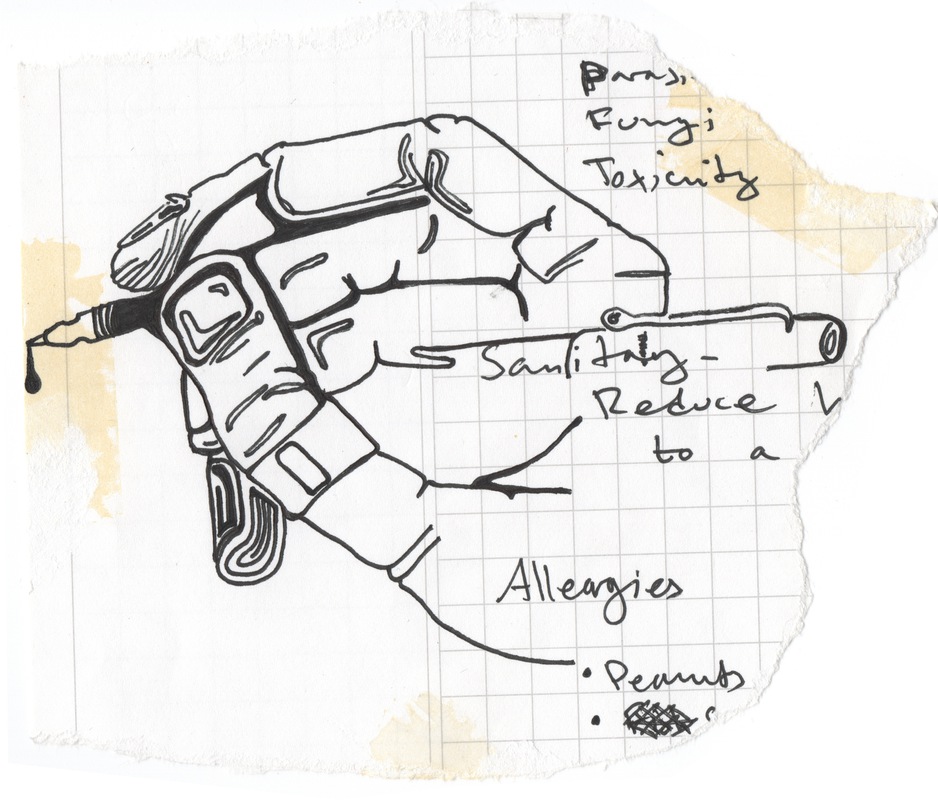 Paras
Fungi
Toxicity
Sanitary-
Reduce
to a
Alleargies
• Peanuts
•